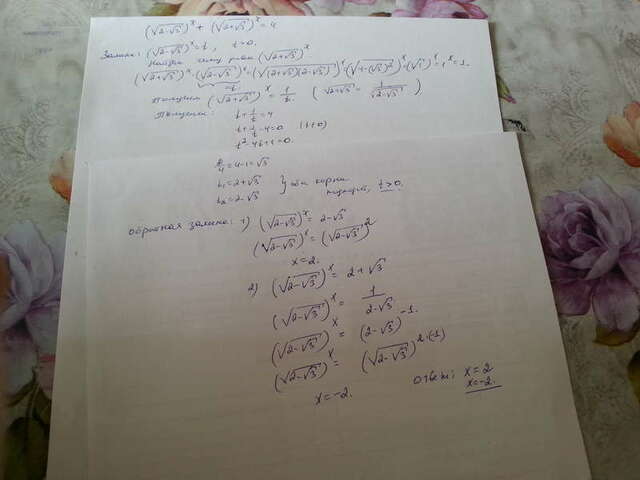 (√2-√3)ˣ + (√2+√3)ˣ = 4
Замена: (√2-√3)ˣ = t, t>0.
Найдём чему равн (√2+√3)ˣ
(√2+√3)ˣ · (√2-√3)ˣ = (√(2+√3)(2-√3))ˣ = (√4-(√3)²)ˣ = (√1)ˣ = 1ˣ = 1.
= t
Получим (√2+√3)ˣ = 1/t. (√2+√3 = 1/√2-√3)
Получили: t + 1/t = 4
t + 1/t - 4 = 0 (t≠0)
t² - 4t + 1 = 0.
D/4 = 4-1 = √3
t₁ = 2+√3
t₂ = 2-√3 } оба корня подходят, t>0.
обратная замена: 1) (√2-√3)ˣ = 2-√3
(√2-√3)ˣ = (√2-√3)²
x = 2.
2) (√2-√3)ˣ = 2+√3
(√2-√3)ˣ = 1/2-√3
(√2-√3)ˣ = (2-√3)⁻¹.
(√2-√3)ˣ = (√2-√3)^2·(-1)
x = -2.
ответ: x = 2
x = -2.